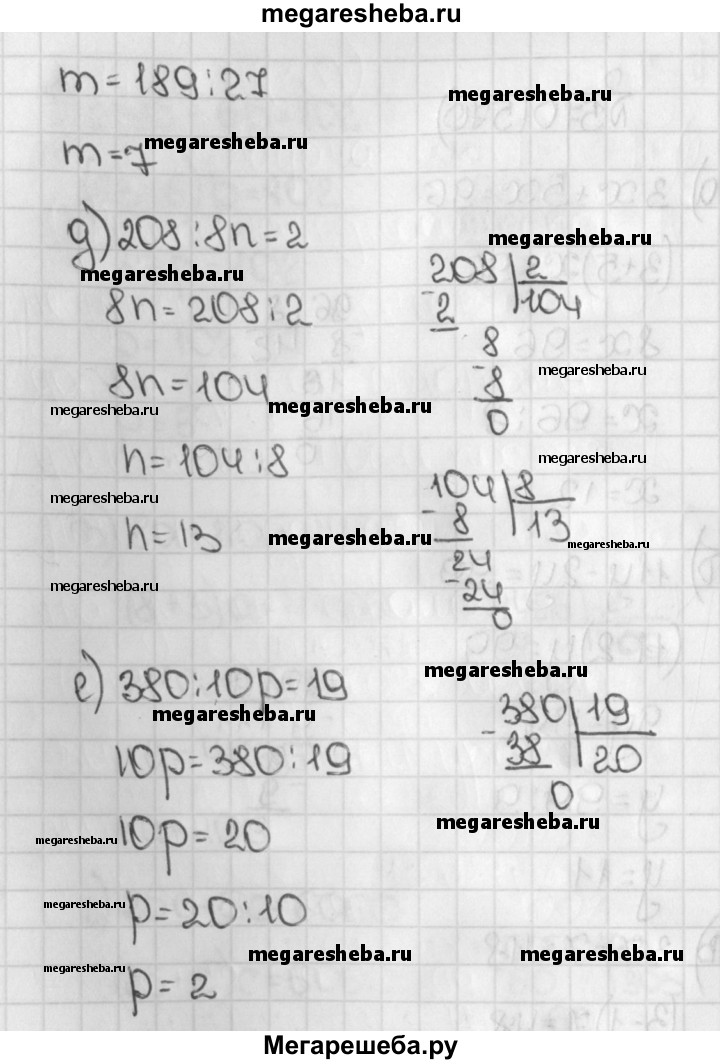 megaresheba.ru
m=189:27
megaresheba.ru
m=7
megaresheba.ru
д) 208:8n=2
megaresheba.ru
megaresheba.ru
8n=208:2
208 | 2
-2 104
8
-8
0
8n=104
megaresheba.ru
megaresheba.ru
megaresheba.ru
n=104:8
megaresheba.ru
megaresheba.ru
n=13
104 | 8
-8 13
24
-24
0
megaresheba.ru
megaresheba.ru
megaresheba.ru
е) 380:10p=19
megaresheba.ru
megaresheba.ru
10p=380:19
380 | 19
-38 20
0
10p=20
megaresheba.ru
megaresheba.ru
p=20:10
megaresheba.ru
megaresheba.ru
megaresheba.ru
p=2
megaresheba.ru
Мегарешеба.ру